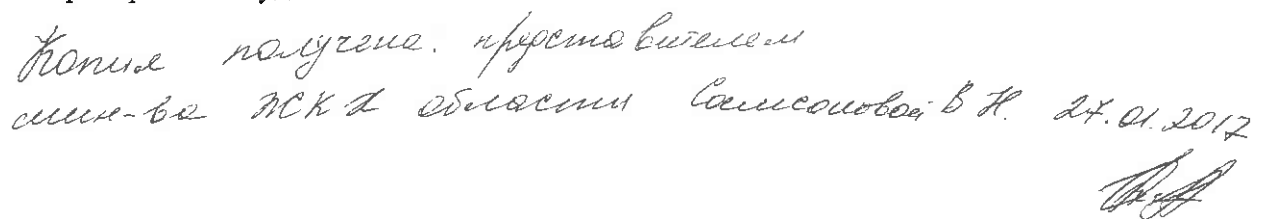 Копия получена. представителем
мин-ва ЖКХ области Самсоновой В Н. 27.01.2017